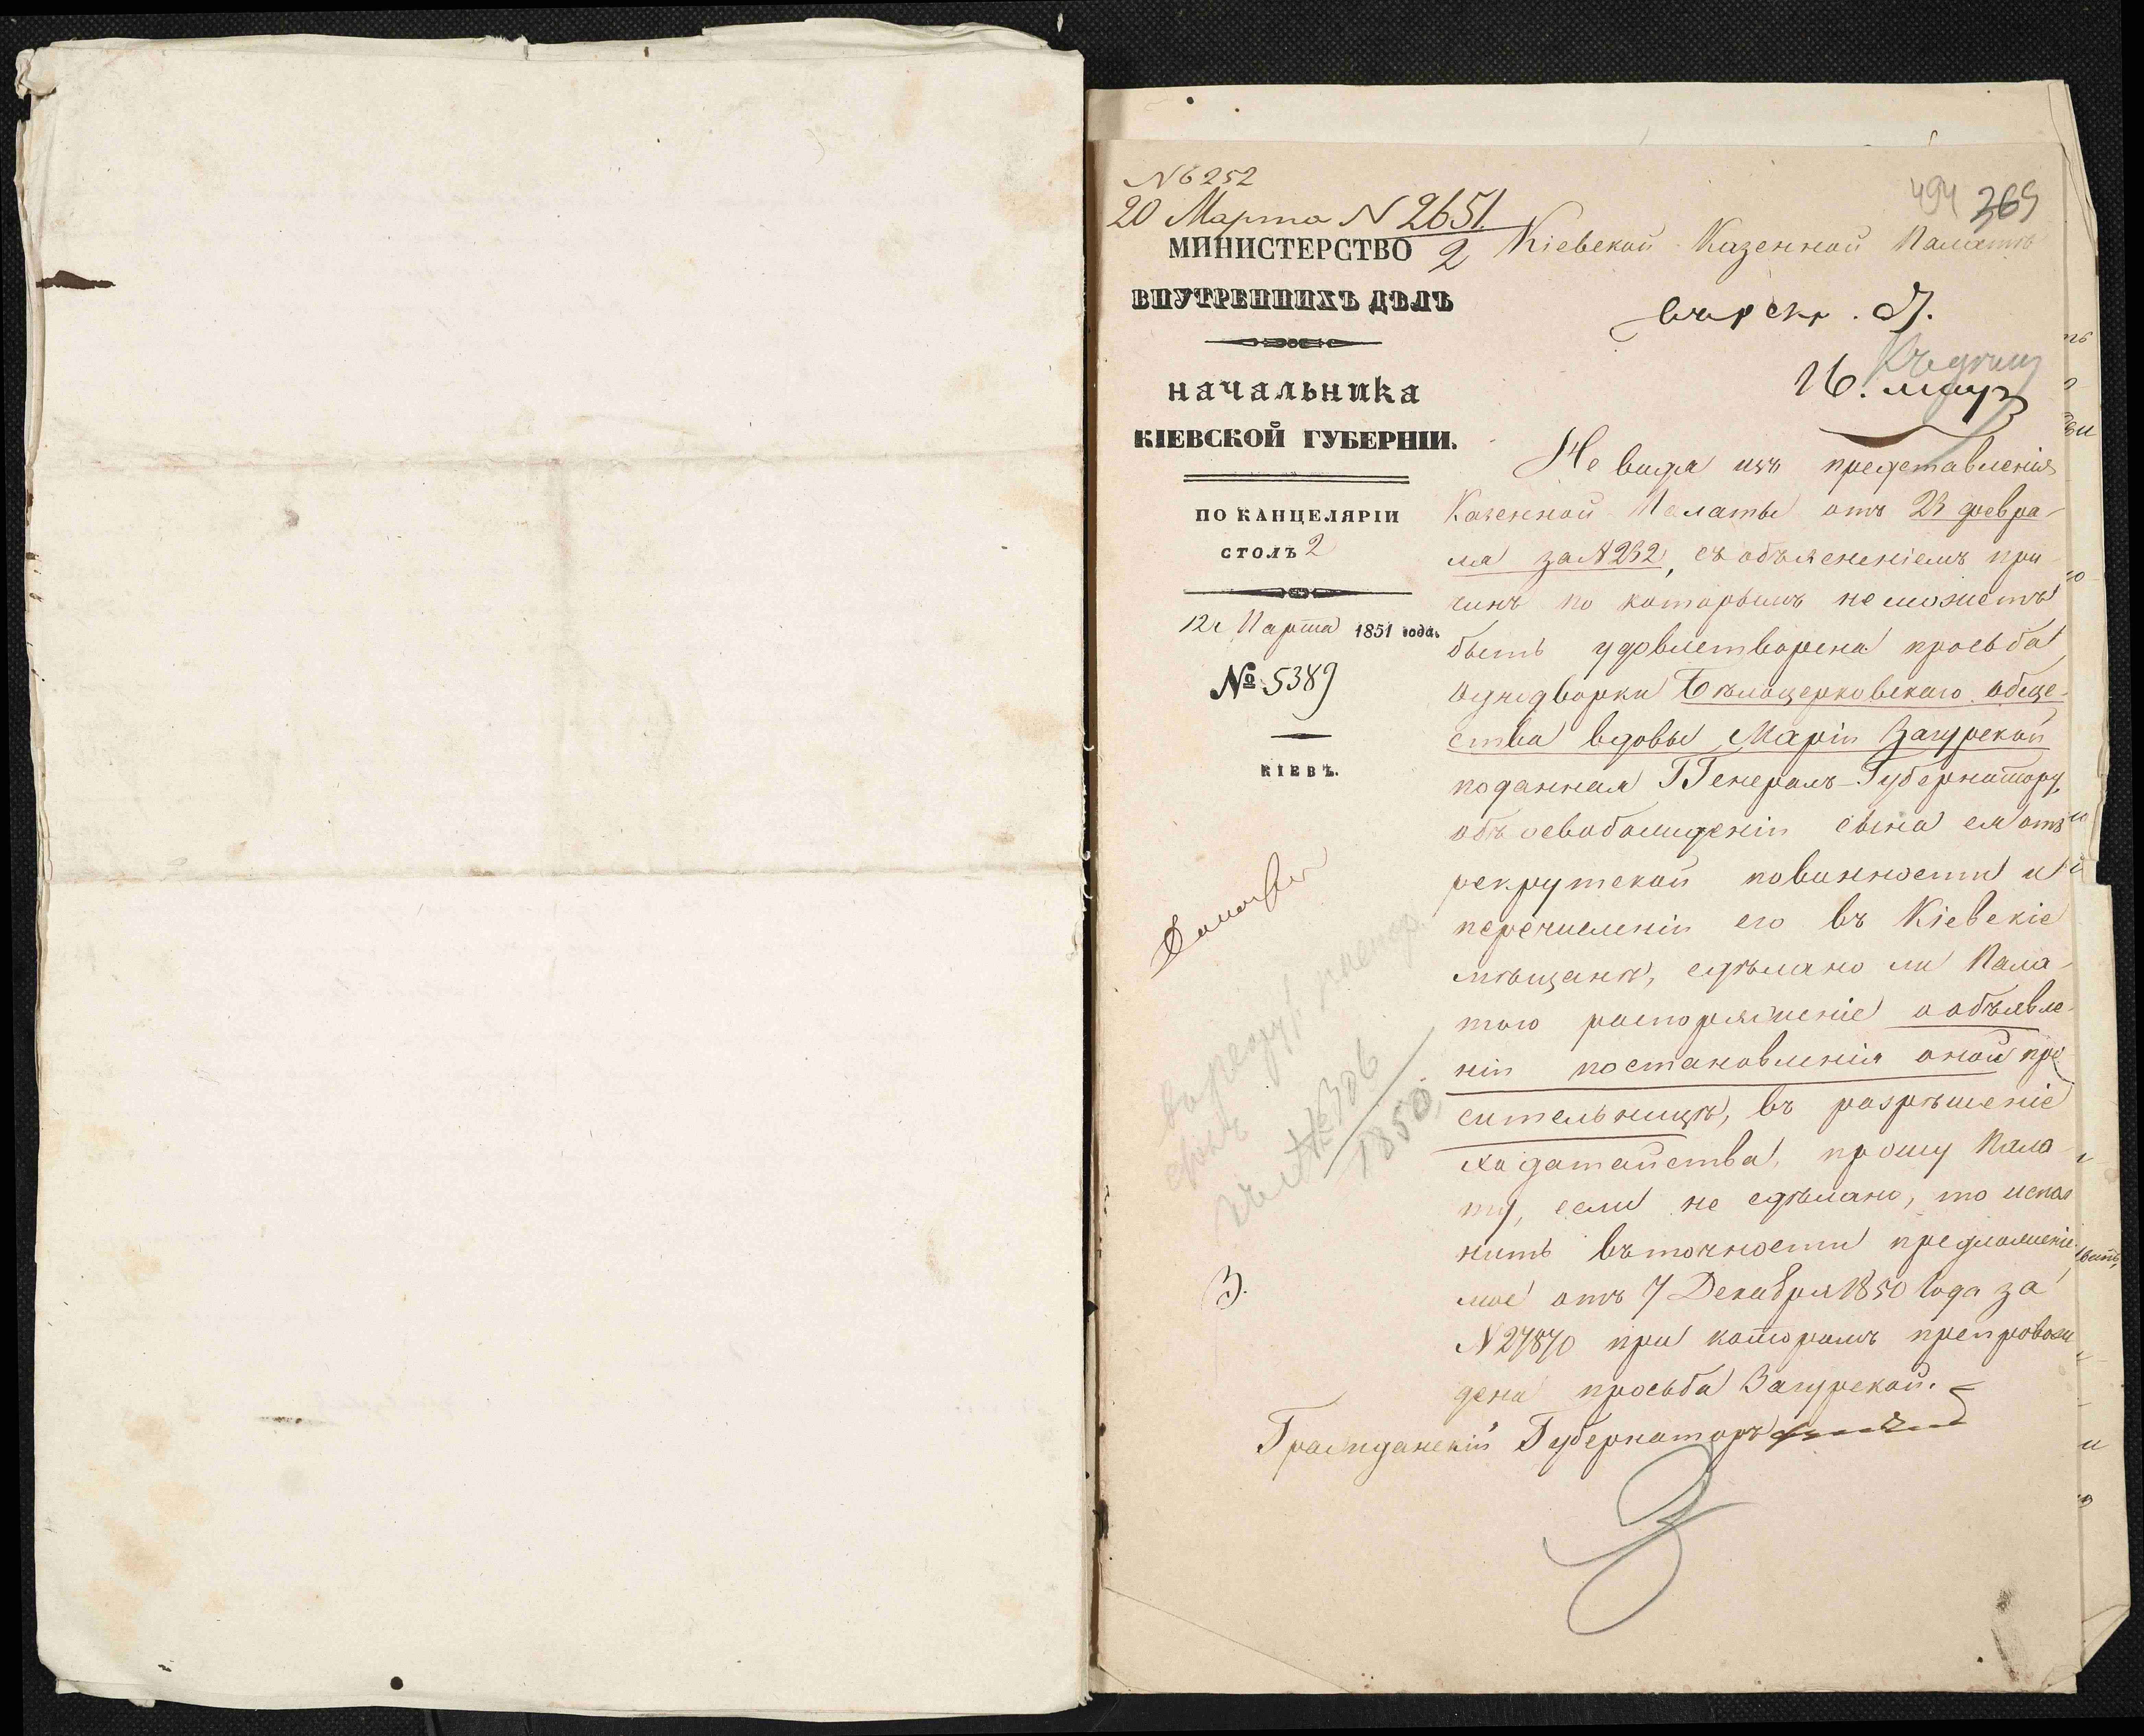 N 6252
20 Марта N 2651
2
494 369
МИНИСТЕРСТВО
ВНУТРЕННИХЪ ДѢЛЪ
НАЧАЛЬНИКА
КІЕВСКОЙ ГУБЕРНІИ.
ПО КАНЦЕЛЯРІИ
СТОЛЪ 2
12 Марта 1851 года.
№ 5389
КІЕВЪ.
Кіевской Казенной Палатѣ
16. мар
Не видя изъ представленія
Казенной Палаты отъ 23 февра-
ля за N 232, съ объясненіемъ при
чинъ по которымъ неможетъ
быть удовлетворена просьба
однодворки Бѣлоцерковскаго обще-
ства вдовы Маріи Загурской
поданная Г Генералъ-Губернатору,
объ освобожденіи сына ея отъ
рекрутской повинности и
перечисленіи его въ Кіевскіе
мѣщане, сдѣлано ли Пала-
тою распоряженіе о объявле-
ніи постановленія оной про
сительницѣ, въ разрѣшеніе
ходатайства, прошу Пала
ту, если не сдѣлано, то испол
нить въ точности предложеніе
мое отъ 7 Декабря 1850 года за
N 27870 при которомъ препровож
дена просьба Загурской.
Гражданскій Губернаторъ
1850